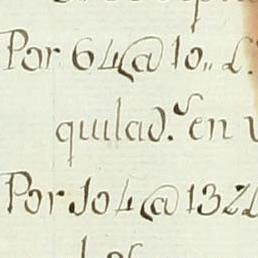 Por 64@10,, L.
quilad.s en
Por 104@132L